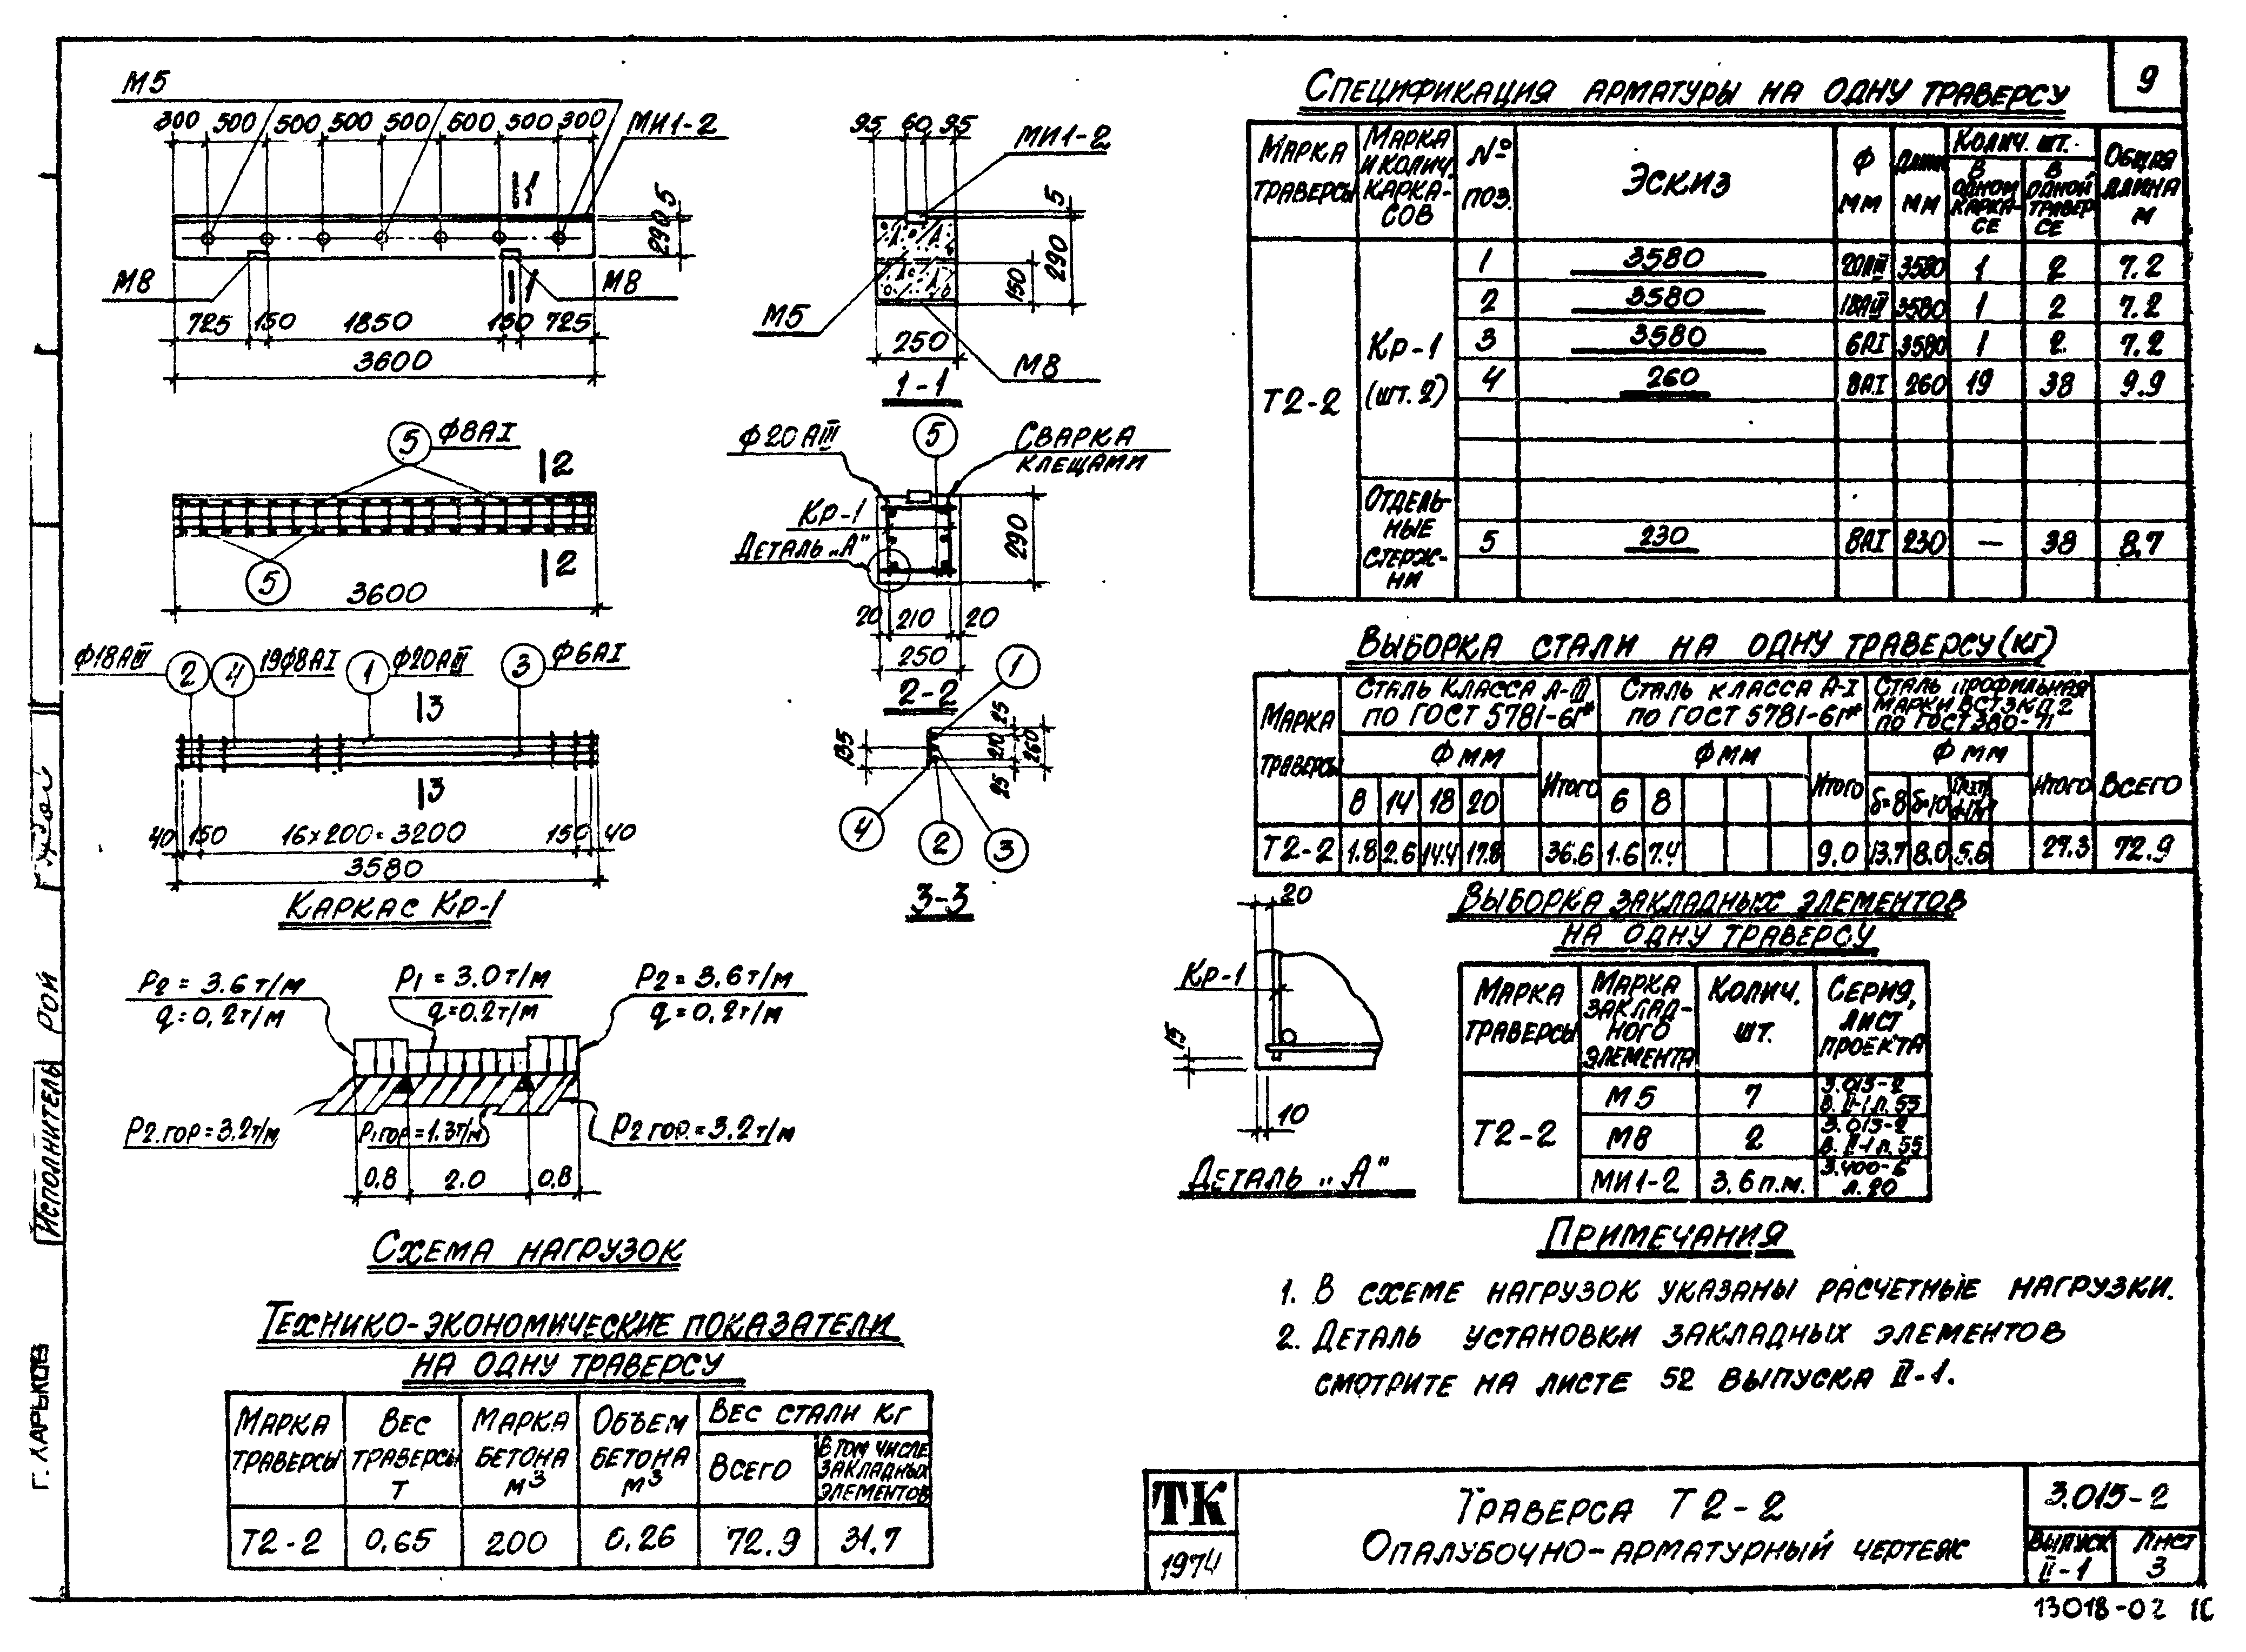 9
М5
300 500 500 500 500 600 500 300
МИ1-2
290 5
М8
М8
725 150 1850 150 725
3600
95 60 95
МИ1-2
5
290
150
М5
250
М8
1-1
5 Ф8АI
2
2
5
3600
Ф20АIII
5
Сварка
клещами
Кр-1
Деталь „А"
290
20 210 20
250
2-2
Ф18АIII 2 4 19Ф8АI 1 Ф20АIII 3 Ф6АI
13
13
40 150 16х200=3200 150 40
3580
Каркас Кр-1
1
135
25
210
260
25
4 2 3
3-3
P2=3.6т/м
q=0,2т/м
P1=3.0т/м
q=0.2т/м
P2=3.6т/м
q=0,2т/м
P2.гор=3.2т/м
P1гор=1.3т/м
P2гор.=3.2т/м
0.8 2.0 0.8
Схема нагрузок
Технико-экономические показатели
на одну траверсу
Марка траверсы
Вес траверсы т
Марка бетона м3
Объем бетона м3
Вес стали кг
Всего
В том числе закладных элементов
Т2-2 0.65 200 0.26 72.9 31.7
Спецификация арматуры на одну траверсу
Марка траверсы
Марка и колич. каркасов
№ поз.
Эскиз
Ф мм
Длина мм
Колич. шт.
в одном каркасе
в одной траверсе
Общая длина м
Т2-2
Кр-1
(шт. 2)
1 3580 20АIII 3580 1 2 7.2
2 3580 18АIII 3580 1 2 7.2
3 3580 6АI 3580 1 2 7.2
4 260 8АI 260 19 38 9.9
Отдель-
ные
стерж-
ни
5 230 8АI 230 — 38 8.7
Выборка стали на одну траверсу (кг)
Марка траверсы
Сталь класса А-III
по ГОСТ 5781-61*
Сталь класса А-I
по ГОСТ 5781-61*
Сталь профильная
марки ВСт3кп2
по ГОСТ 380-71
Всего
Ф мм Итого Ф мм Итого Ф мм Итого
8 14 18 20 6 8 δ=8 δ=10
Т2-2 1.8 2.6 14.4 17.8 36.6 1.6 7.4 9.0 13.7 8.0 5.6 27.3 72.9
20
Кр-1
15
10
Деталь „А"
Выборка закладных элементов
на одну траверсу
Марка траверсы
Марка заклад-ного элемента
Колич. шт.
Серия, лист проекта
Т2-2
М5 7 3.015-2 в. II-1 л. 53
М8 2 3.015-2 в. II-1 л. 55
МИ1-2 3.6 п.м. 3.400-6 л. 20
Примечания
1. В схеме нагрузок указаны расчетные нагрузки.
2. Деталь установки закладных элементов
смотрите на листе 52 выпуска II-1.
ТК
1974
Траверса Т2-2
Опалубочно-арматурный чертеж
3.015-2
Выпуск II-1
Лист 3
13018-02
Исполнитель Рой
г. Харьков